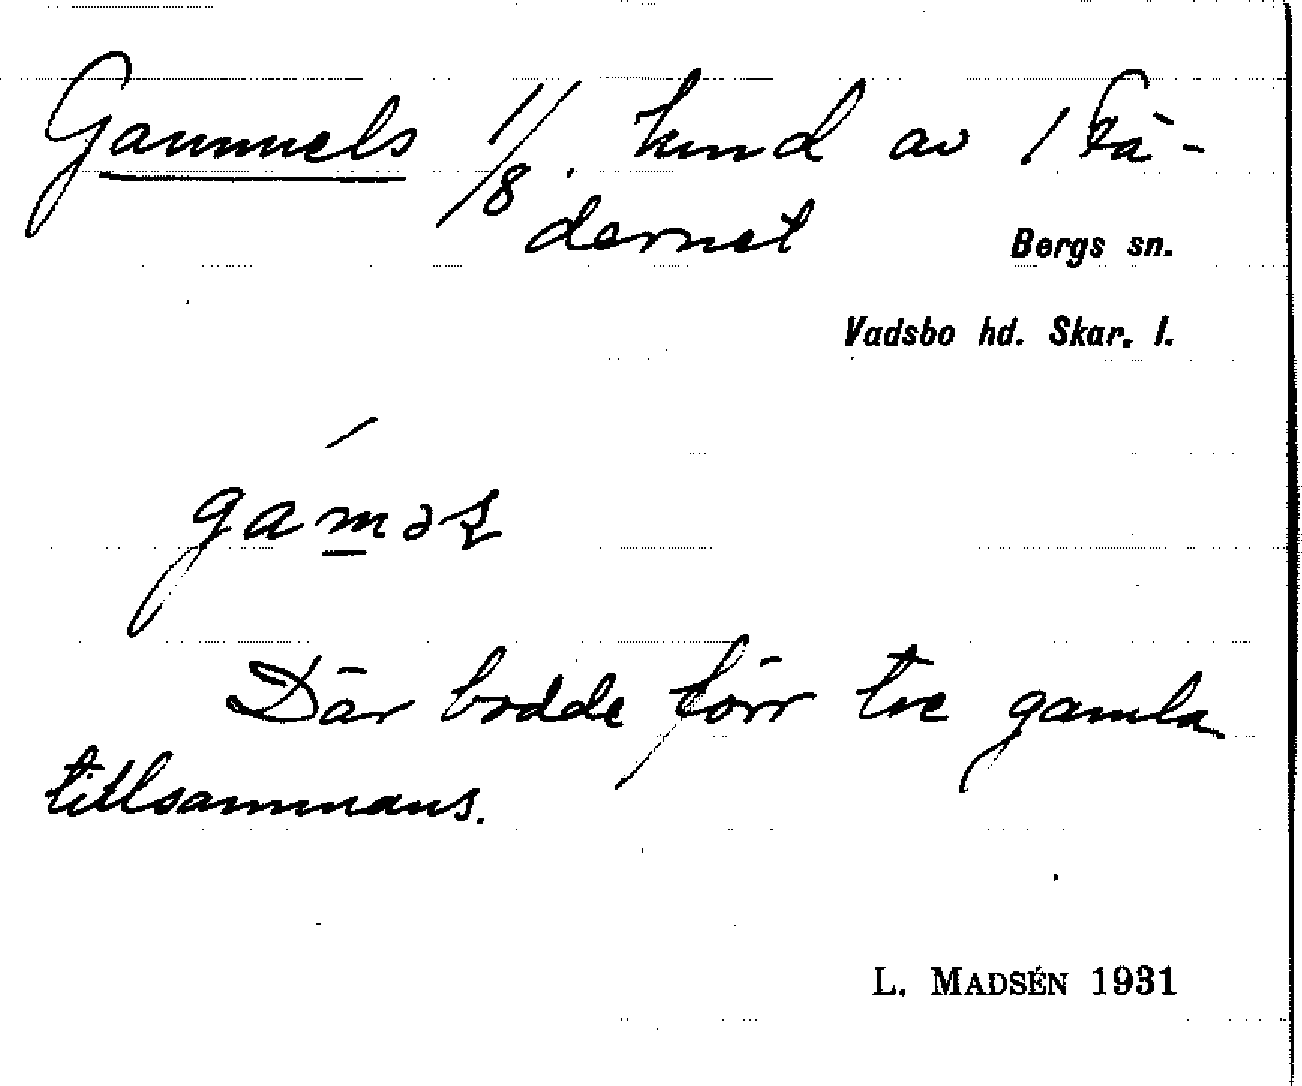 Gammels 1/8 hmd av 1 Fä-
dernet
Bergs sn.
Vadsbo hd. Skar. l.
Där bodde förr tre gamla
tillsammans.
L. MADSÉN 1931